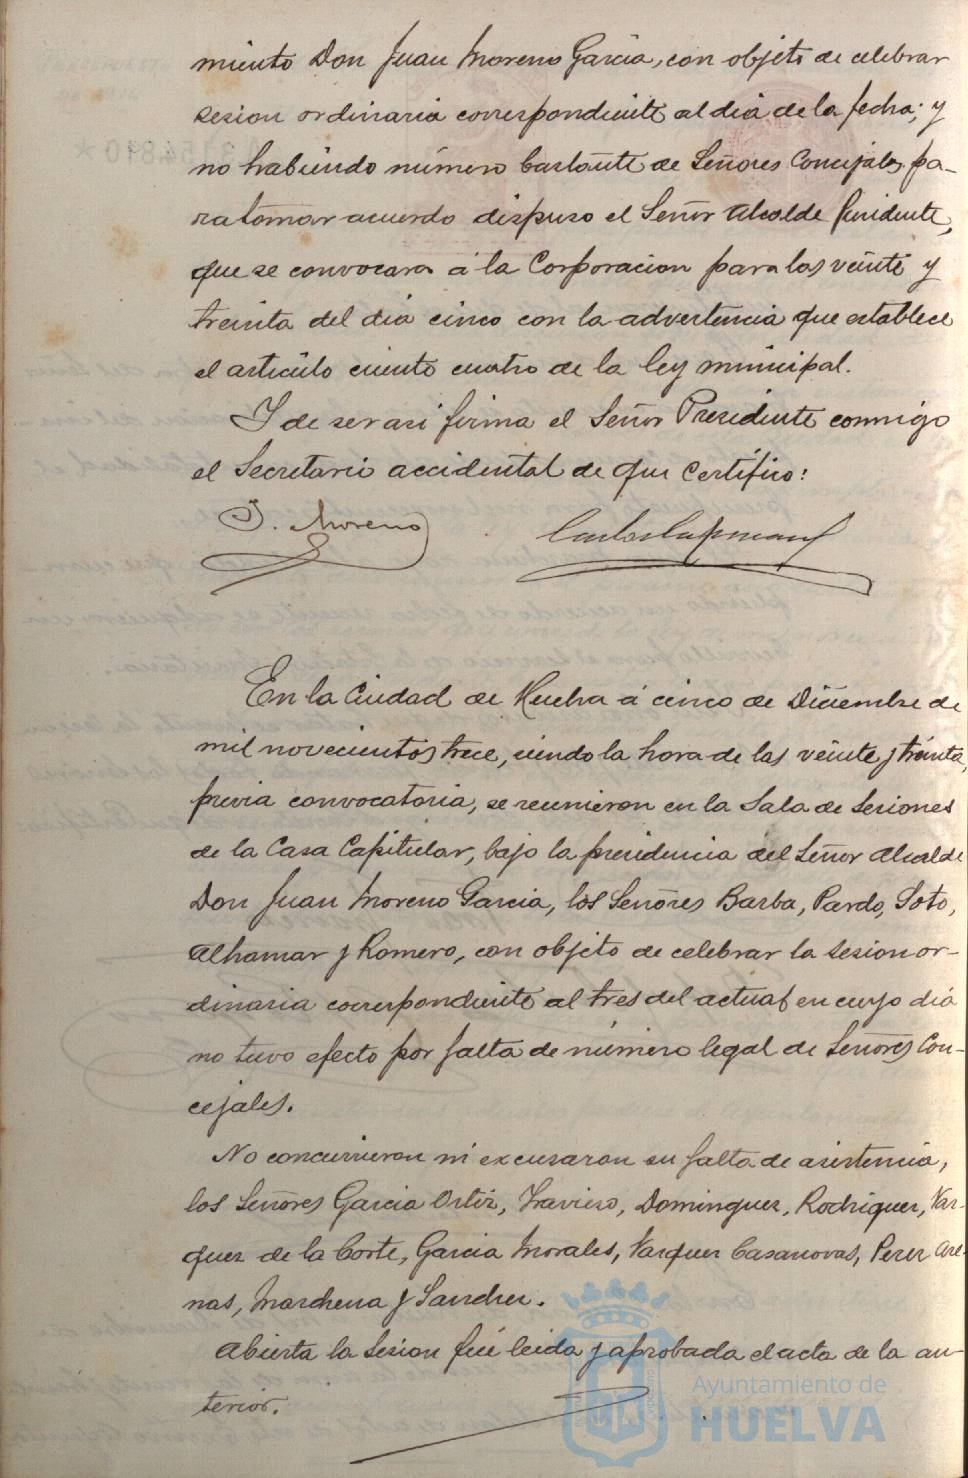 miento Don Juan Moreno Garcia, con objeto de celebrar
sesion ordinaria correspondiente al dia de la fecha; y
no habiendo número bastante de Señores Concejales pa-
ra tomar acuerdo dispuso el Señor Alcalde Presidente,
que se convocara á la Corporacion para las veinte y
treinta del dia cinco con la advertencia que establece
el articulo ciento cuatro de la ley municipal.
Y de ser asi firma el Señor Presidente conmigo
el Secretario accidental de que certifico:
J. Moreno
En la Ciudad de Huelva á cinco de Diciembre de
mil novecientos trece, siendo la hora de las veinte y treinta,
previa convocatoria, se reunieron en la Sala de Sesiones
de la Casa Capitular, bajo la presidencia del Señor Alcalde
Don Juan Moreno Garcia, los Señores Barba, Pardo, Soto,
Alhamar y Romero, con objeto de celebrar la sesion or-
dinaria correspondiente al tres del actual en cuyo dia
no tuvo efecto por falta de número legal de Señores Con-
cejales.
No concurrieron ni excusaron su falta de asistencia,
los Señores Garcia Ortiz, Travieso, Dominguez, Rodriguez, Vaz-
quez de la Corte, Garcia Morales, Vazquez Casanovas, Perez Are-
nas, Marchena y Sanchez.
Abierta la Sesion fué leida y aprobada el acta de la an-
terior.
Ayuntamiento de
HUELVA